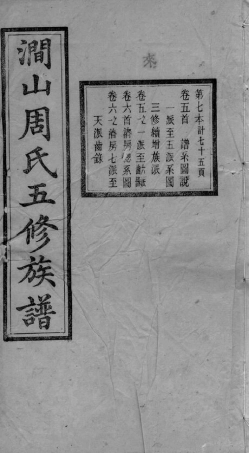 第七本計七十五頁
卷五首 譜系圖說
一派至五派系圖
三修續增族派
卷五之一派至
卷六首 房 系圖
卷六之 房七派至
天派 錄
澗山周氏五修族譜